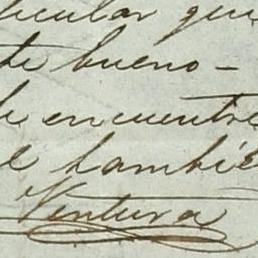 ticular que
te bueno -
le encuentre
el tambié
Ventura